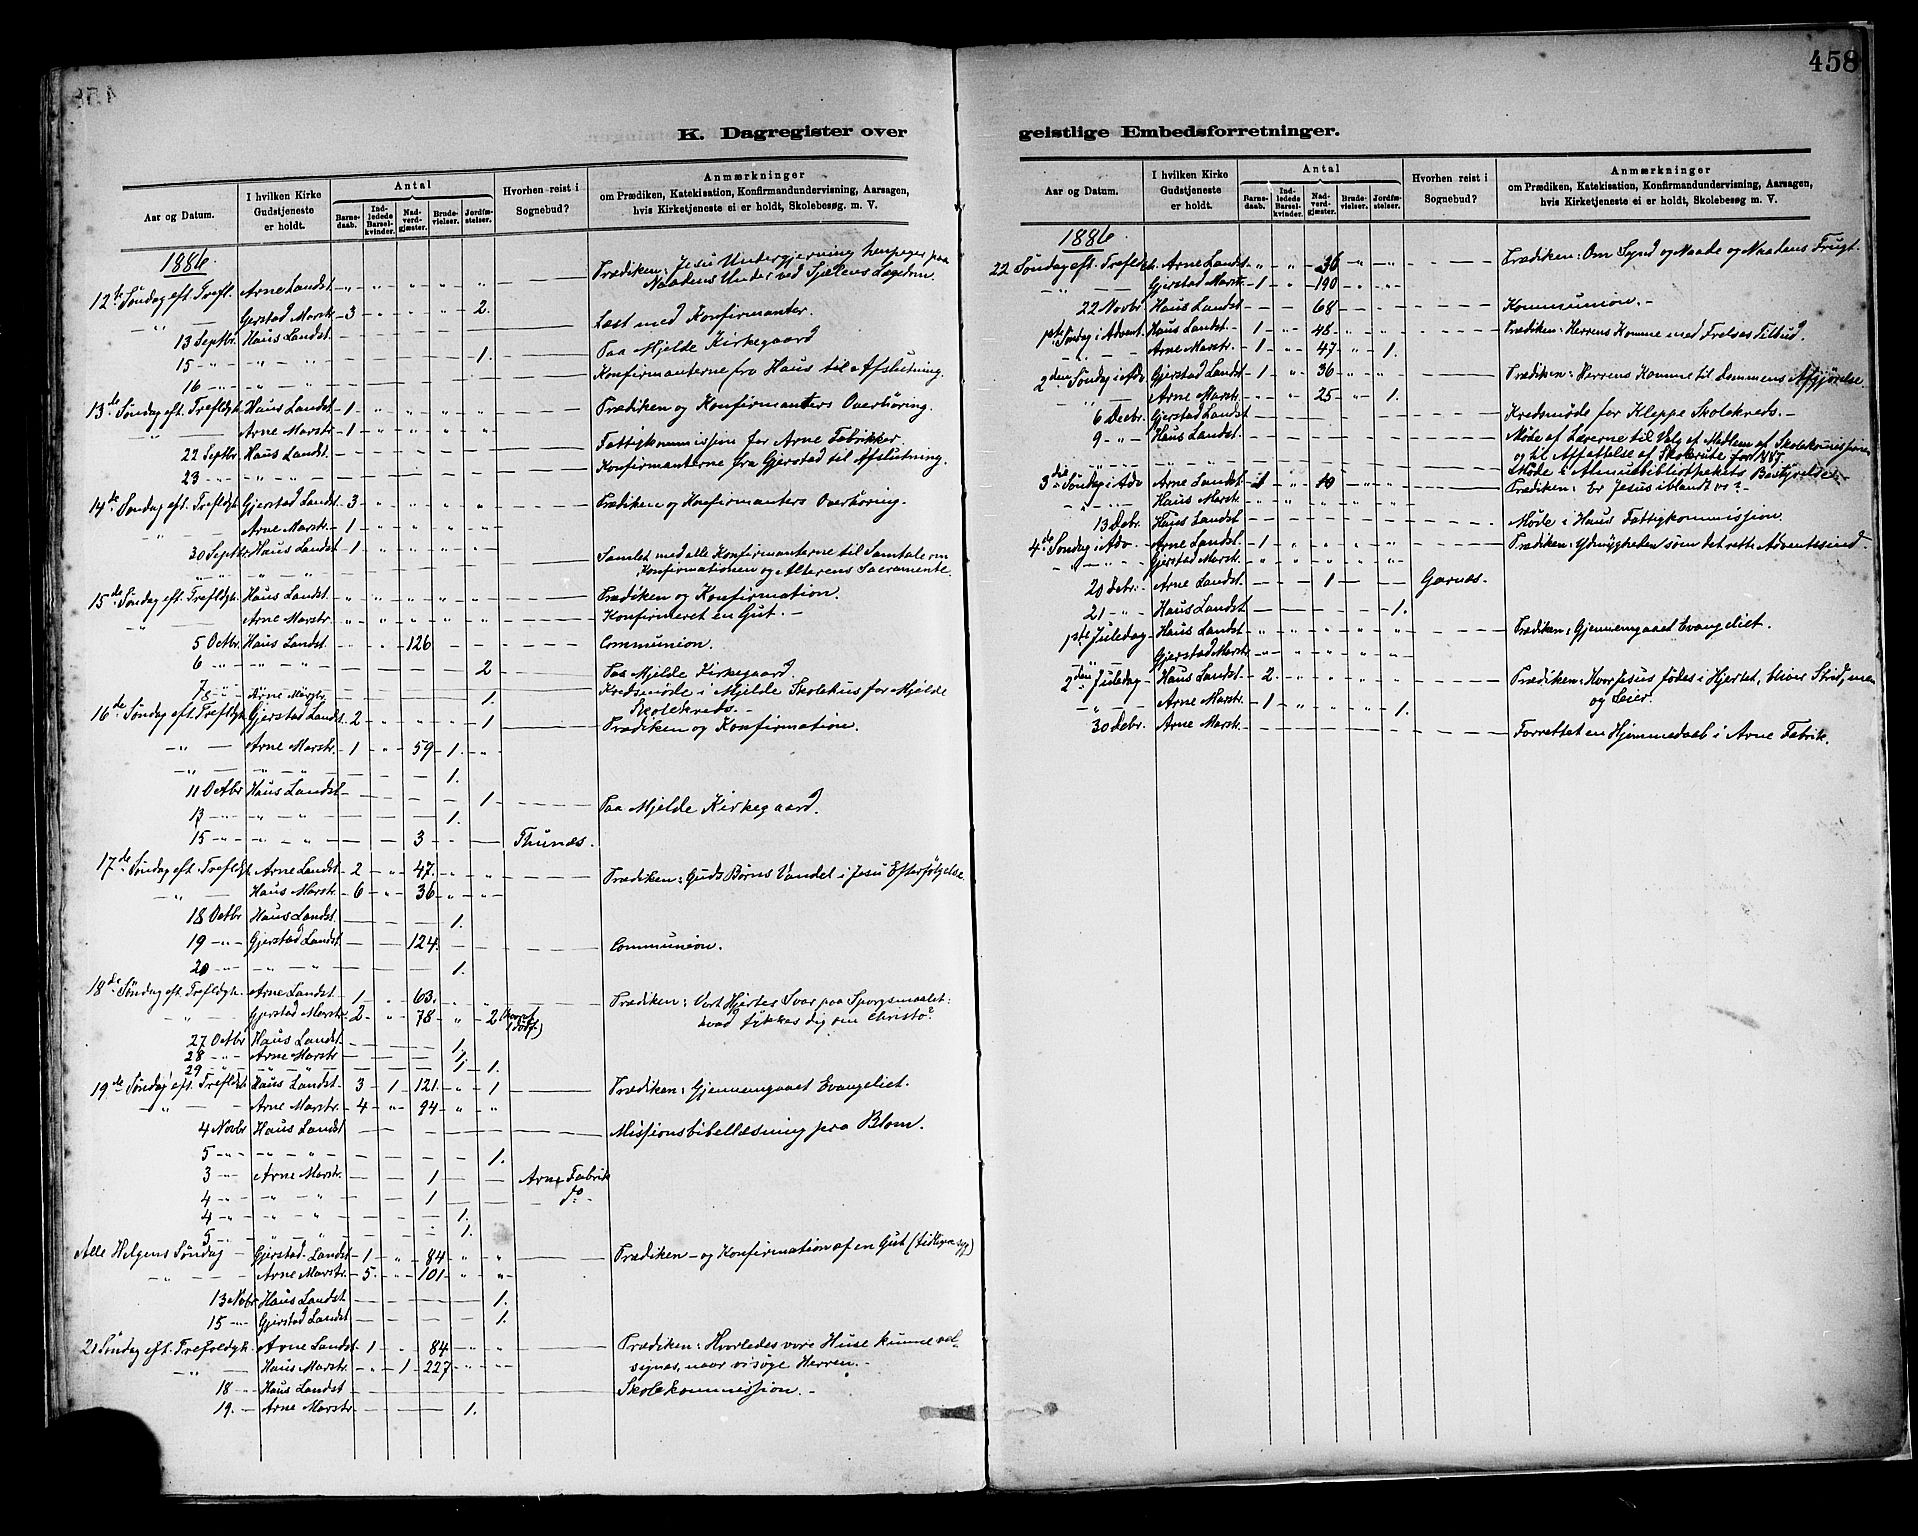 458
K. Dagregister over
Aar og Datum.
I hvilken Kirke Gudstjeneste er holdt.
Antal
Barnedaab.
Indledede Barselkvinder.
Nadverdgjæster.
Brudevielser.
Jordfæstelser.
Hvorhen reist i Sognebud?
Anmærkninger
om Prædiken, Katekisation, Konfirmandundervisning, Aarsagen, hvis Kirketjeneste ei er holdt, Skolebesøg m. V.
1886.
Prædiken: Jesu Undergjerning henpeger paa
12te Søndag eft. Trefl. Arne Landst. - " " " " " Naadens Under ved Sjælens Lægedom
- " - Gerstad Marstr. - 3 - " " " 2.
13 Septbr. Haus Landst. Læst med Konfirmanter.
15 - " - " - " 1. Paa Mjelde Kirkegaard
16 - " - " - " Konfirmanterne fra Haus til Afslutning.
13de Søndag eft. Trefldgh. Haus Landst. - 1 - " " " " Prædiken og Konfirmanters Overhøring.
- " - Arne Marstr. - 1 - " " " "
22 Septbr. Haus Landst. Fattigkommission for Arne Fabrikker.
23 - " - " - " Konfirmanterne fra Gjerstad til Afslutning.
14de Søndag eft. Trefldgh. Gjerstad Landst. - 3 - " " " " Prædiken og Konfirmanters Overhøring.
- " - Arne Marstr. - 1 - " " " "
30 Septbr. Haus Landst. - 1 - " " " "
" " - " - " Samlet med alle Konfirmanterne til Samtale om
Konfirmationen og Alterens Sacramente.
15de Søndag eft. Trefldgh. Haus Landst. - " " " " " Prædiken og Konfirmation.
- " - Arne Marstr. - " " " " " Konfirmeret en Gut. -
5 Octbr. Haus Landst. - " " 126 Communion.
6 - " - " - " 2 Paa Mjelde Kirkegaard.
7 - " - " Kredsmøde i Mjelde Skolehus for Mjelde
8 - " - Arne Marstr. 1. Skolekreds. -
16de Søndag eft. Trefldgh. Gjerstad Landst. 2 - " " " 1 Prædiken og Konfirmation.
- " - Arne Marstr. - 1 - " 59 - 1. - "
- " - " - " 1.
11 Octbr Haus Landst. 1 Paa Mjelde Kirkegaard.
13 - " - " - " 1.
15 - " - " - " 3 Thunæs.
17de Søndag eft. Trefldgh. Arne Landst. - 2 - " 47. - " " Prædiken: Guds Børns Vandel i Jesu Efterfølgelse
- " - Haus Marstr. - 6 - " 36 - " "
18 Octbr Haus Landst. 1.
19 - " - Gjerstad Landst. 124. Communion.
20 - " - " - " 1.
18de Søndag eft. Trefldgh. Arne Landst. - 1 - " 63. - " " Prædiken: Vort Hjertes Svar paa Spørgsmaalet:
- " - Gjerstad Marstr. - 2 - " 78 - " - 2 hvad tykkes dig om Christo?
27 Octbr Haus Landst. 1.
28 - " - Arne Marstr 1.
29 - " - " - " 1.
19de Søndag eft. Trefldgh. Haus Landst. - 3 - 1 - 121. - " - 1 Prædiken: Gjennemgaaet Evangeliet.
- " - Arne Marstr. - 4 - " 94 - " - "
4 Novbr Haus Landst Missionsbibellæsning paa Blom.
5 - " - " - " 1.
3 - " - Arne Marstr. 1 Arne Fabrik
4 - " - " - " 1 do
4 - " - " - " 1.
5 - " - " - " 1.
Alle Helgens Søndag - Gjerstad Landst - 1 - " 84 - " " Prædiken - og Konfirmation af en Gut (tidligere syg)
- " - Arne Marstr. - 5. - " 101 - " "
13 Novbr Haus Landst 1.
15 - " - Gjerstad Landst 1.
21 Søndag eft. Trefoldgh. Arne Landst. - 1 - " 84 - " " Prædiken: Hvorledes vore Huse kunne vel-
- " - Haus Marstr. - " - 1 - 227 - " " signes, naar vi søge Herren. -
18 - Haus Landst Skolekommission. -
19. - Arne Marstr. 1.
458
geistlige Embedsforretninger.
Aar og Datum.
I hvilken Kirke Gudstjeneste er holdt.
Antal
Barnedaab.
Indledede Barselkvinder.
Nadverdgjæster.
Brudevielser.
Jordfæstelser.
Hvorhen reist i Sognebud?
Anmærkninger
om Prædiken, Katekisation, Konfirmandundervisning, Aarsagen, hvis Kirketjeneste ei er holdt, Skolebesøg m. V.
1886.
22 Søndag eft. Trefldgh. Arne Landst. - " " 36 - " " Prædiken: Om Synd og Naade og Naadens Frugt.
- " - Gjerstad Marstr. - 1 - " 190 - " "
22 Novbr. Haus Landst 68 Kommunion. -
1ste Søndag i Advent. Haus Landst. - 1 - " 48 - " " Prædiken: Herrens Komme med Frelses Tilbud.
- " - Arne Marstr. - 1 - " 47 - " 1.
2den Søndag i Adv Gjerstad Landst - 1 - " 36 - " " Prædiken: Herrens Komme til Dommens Afgjørelse
- " - Arne Marstr. " 25 - " 1.
6 Decbr. Gjerstad Landst Kredsmøde for Kleppe Skolekreds. -
9 - " - Haus Landst. Møde af Lærerne til Valg af Medlem af Skolekommissionen
og til Affattelse af Skolerute for 1887.
" " - " - " Møde i Almuebibliothekets Bestyrelse. -
3die Søndag i Adv Arne Landst - 1 - " 10 - " " Prædiken: Er Jesus iblandt os? -
- " - Haus Marstr. - " "
13 Debr. Haus Landst. Møde i Haus Fattigkommission.
4de Søndag i Adv - Arne Landst. - 1 - " " " " Prædiken: Ydmygheden som det rette Adventssind.
- " - Gjerstad Marstr. - " " " " "
20 Debr. Arne Landst. 1 Garnæs.
21 - " - Haus Landst 1.
1ste Juledag - Haus Landst - " " " " " Prædiken: Gjennemgaaet Evangeliet.
- " - Gjerstad Marstr. - " " " " "
2den Juledag - Haus Landst - 2. " " " " Prædiken: Hvor Jesus fødes i Hjertet, bliver Strid, men
- " - Arne Marstr. - 1 - " " " 1. og Seier.
30 Debr. Arne Marstr. Forrettet en Hjemmedaab i Arne Fabrik.